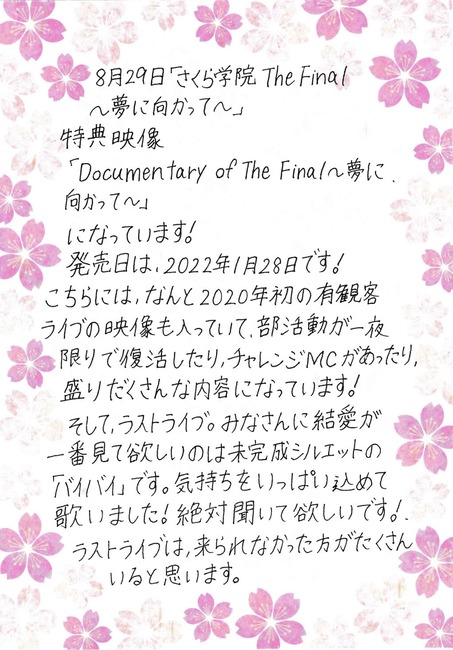 8月29日「さくら学院 The Final
～夢に向かって～」
特典映像
「Documentary of The Final～夢に
向かって～」
になっています！
発売日は、2022年1月28日です！
こちらには、なんと2020年初の有観客
ライブの映像も入っていて、部活動が一夜
限りで復活したり、チャレンジMCがあったり、
盛りだくさんな内容になっています！
そして、ラストライブ。みなさんに結愛が
一番見て欲しいのは未完成シルエットの
「バイバイ」です。気持ちをいっぱい込めて
歌いました！絶対聞いて欲しいです！
ラストライブは、来られなかった方がたくさん
いると思います。